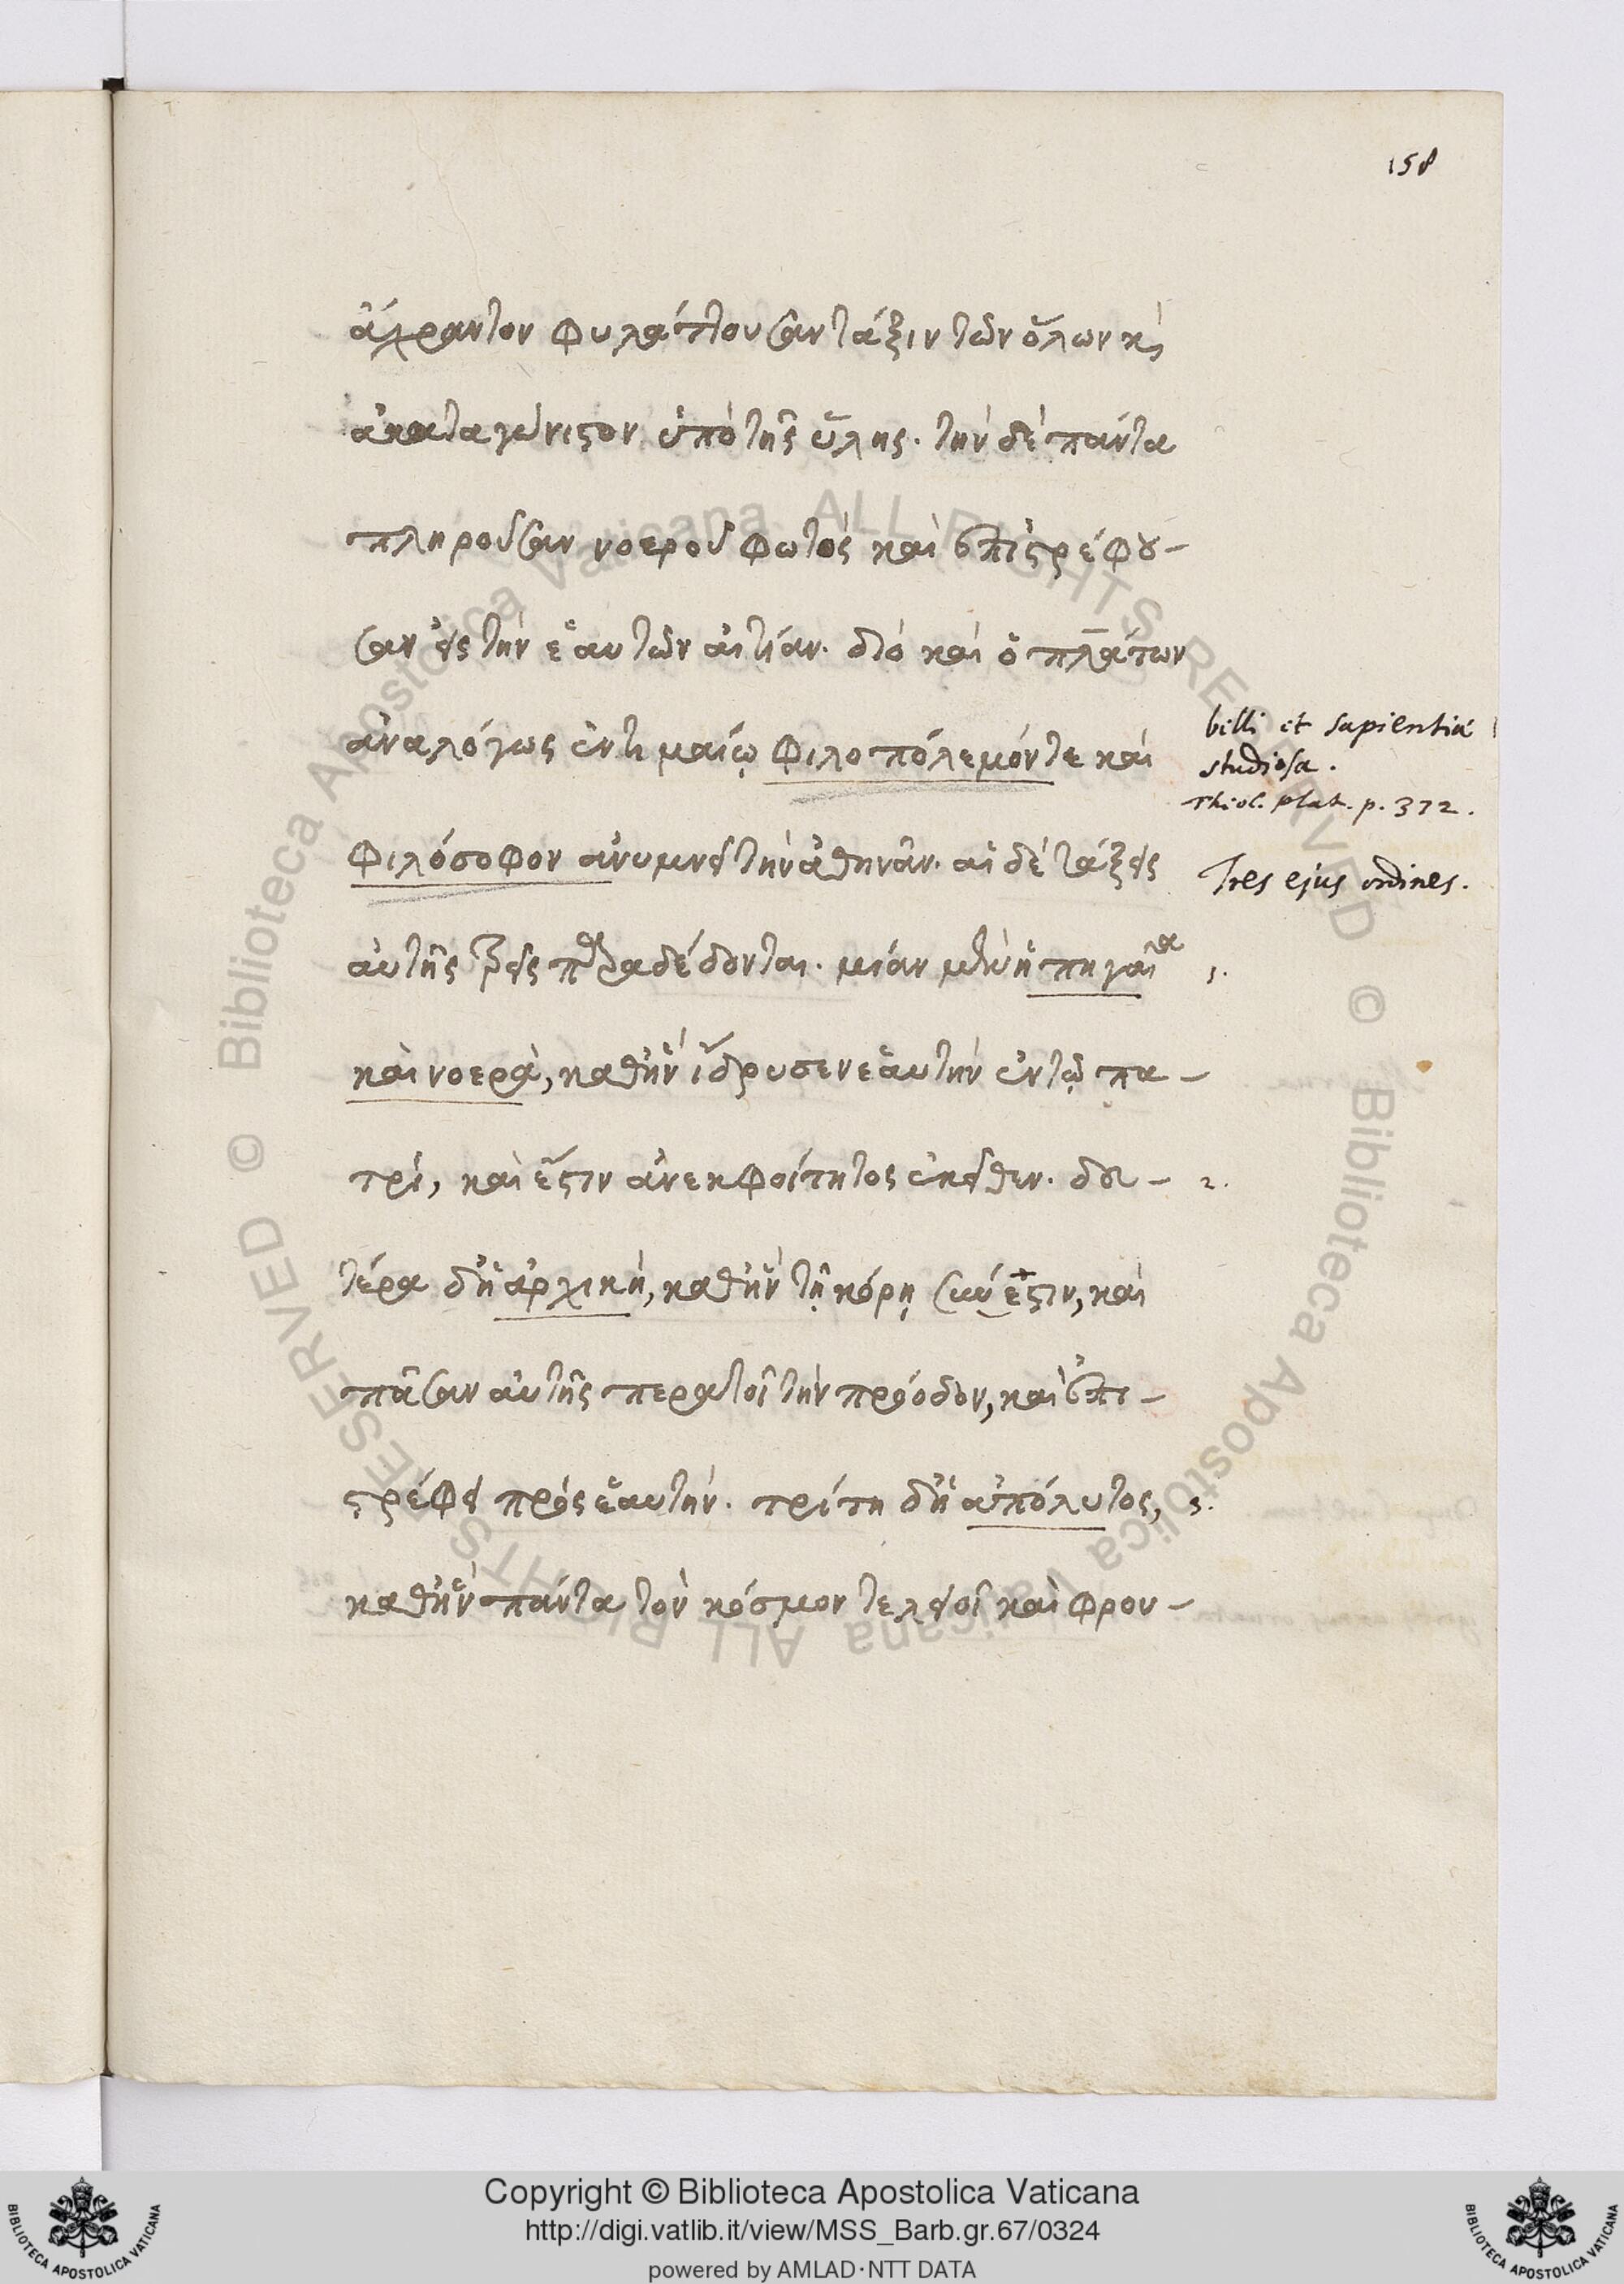 158
ἄχραντον φυλάττουσαν τάξιν τῶν ὅλων κὶ
ἀκαταγώνιστον ὑπὸ τῆς ὕλης. τὴν δὲ πάντα
πληροῦσαν νοεροῦ φωτὸς καὶ ἐπιστρέφου–
σαν εἰς τὴν ἑαυτῶν αἰτίαν. διὸ καὶ ὁ πλάτων
ἀναλόγως ἐν τιμαίῳ φιλοπόλεμόν τε καὶ
φιλόσοφον ἀνυμνεῖ τὴν ἀθηνᾶν. αἱ δὲ τάξεις
αὐτῆς τρεῖς παραδέδονται. μίαν μὲν ἡ πηγαία
καὶ νοερὰ, καθ' ἣν ἵδρυσεν ἑαυτὴν ἐν τῷ πα–
τρὶ, καὶ ἔστιν ἀνεκφοίτητος ἐκεῖθεν. δευ–
τέρα δ' ἡ ἀρχικὴ, καθ' ἣν τῇ κόρῃ σύνεστιν, καὶ
πᾶσαν αὐτῆς περατοῖ τὴν πρόοδον, καὶ ἐπι–
στρέφει πρὸς ἑαυτήν. τρίτη δ' ἡ ἀπόλυτος,
καθ' ἣν πάντα τὸν κόσμον τελειοῖ καὶ φρου–
belli et sapientiæ
studiosa.
Theol. plat. p. 372.
Tres ejus ordines.
1.
2.
3.
Copyright © Biblioteca Apostolica Vaticana
http://digi.vatlib.it/view/MSS_Barb.gr.67/0324
powered by AMLAD·NTT DATA
BIBLIOTECA APOSTOLICA VATICANA
BIBLIOTECA APOSTOLICA VATICANA
© Biblioteca Apostolica Vaticana ALL RIGHTS RESERVED
© Biblioteca Apostolica Vaticana ALL RIGHTS RESERVED